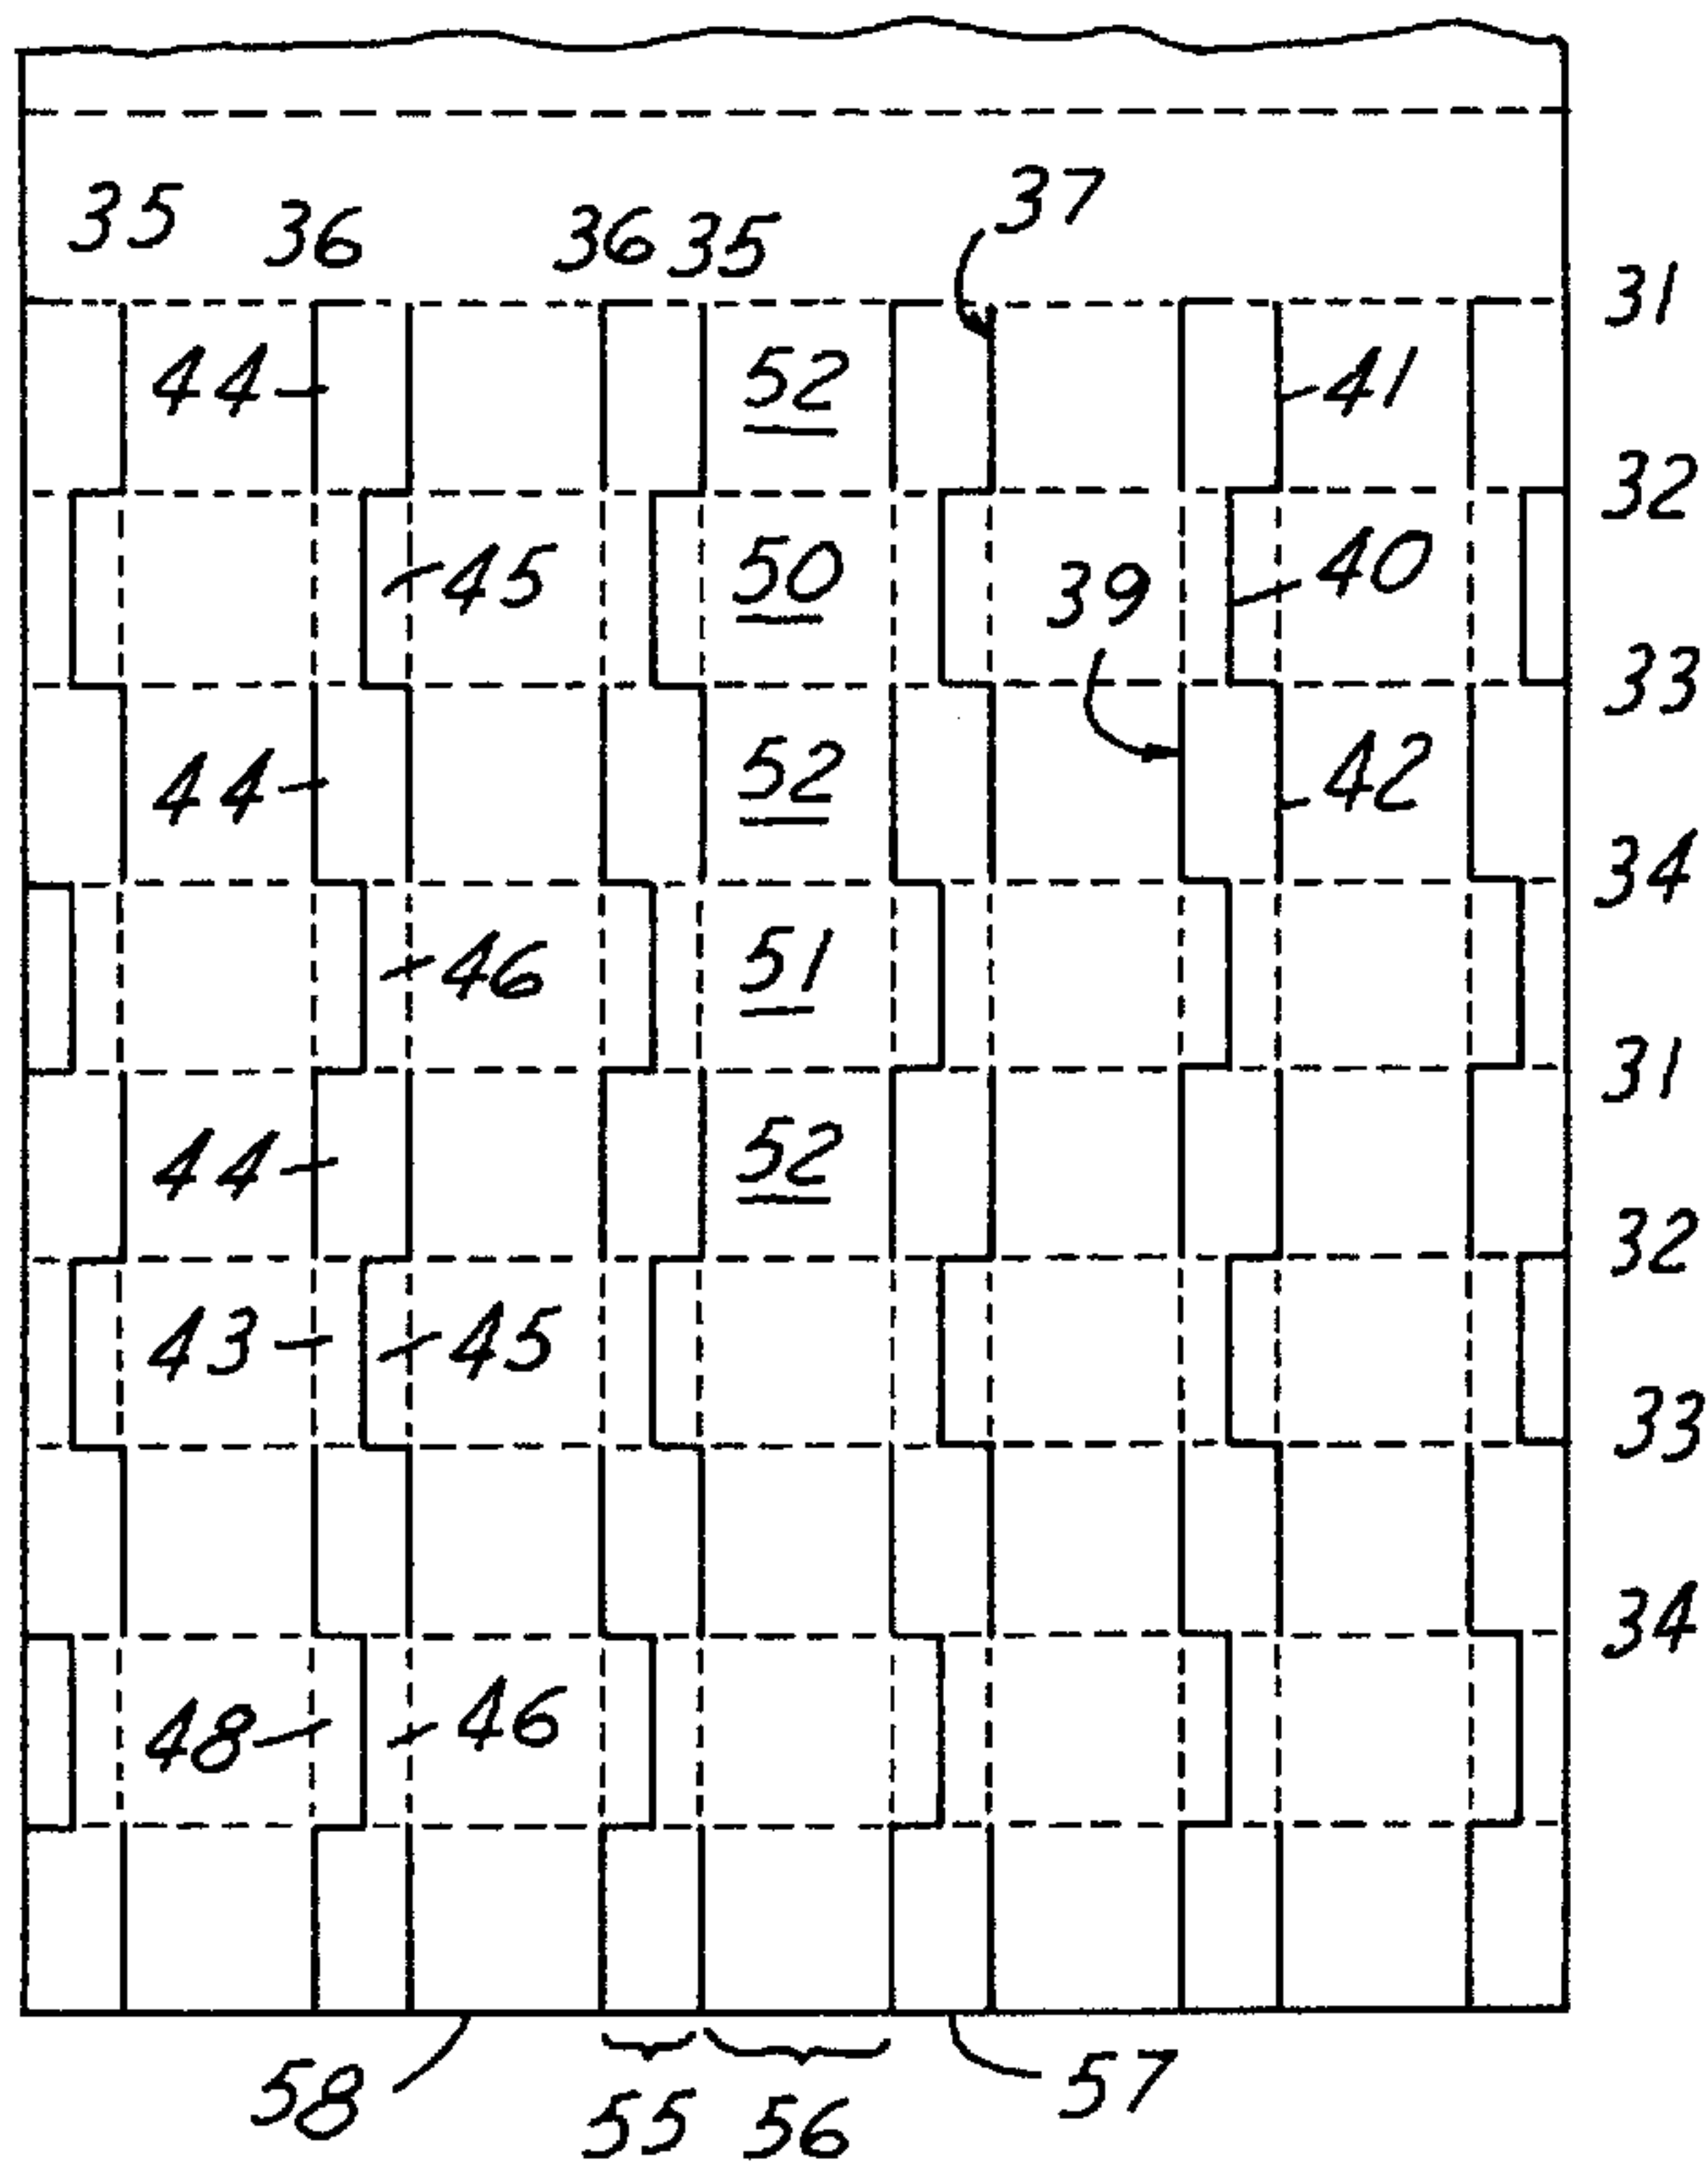 35 36 36 35 37
31
44 52 41
32
45 50 39 40
33
44 52 42
34
46 51
31
44 52
32
43 45
33
34
48 46
58 55 56 57